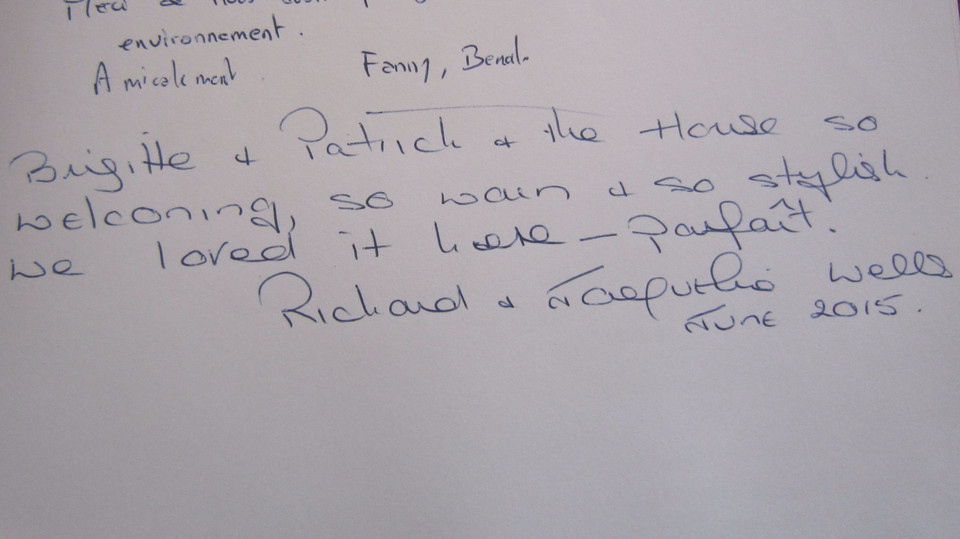 environnement.
Amicalement Fanny,
Brigitte + Patrick + the House so
welcoming, so warm + so stylish.
we loved it here - Parfaît.
Richard + Wells
June 2015.